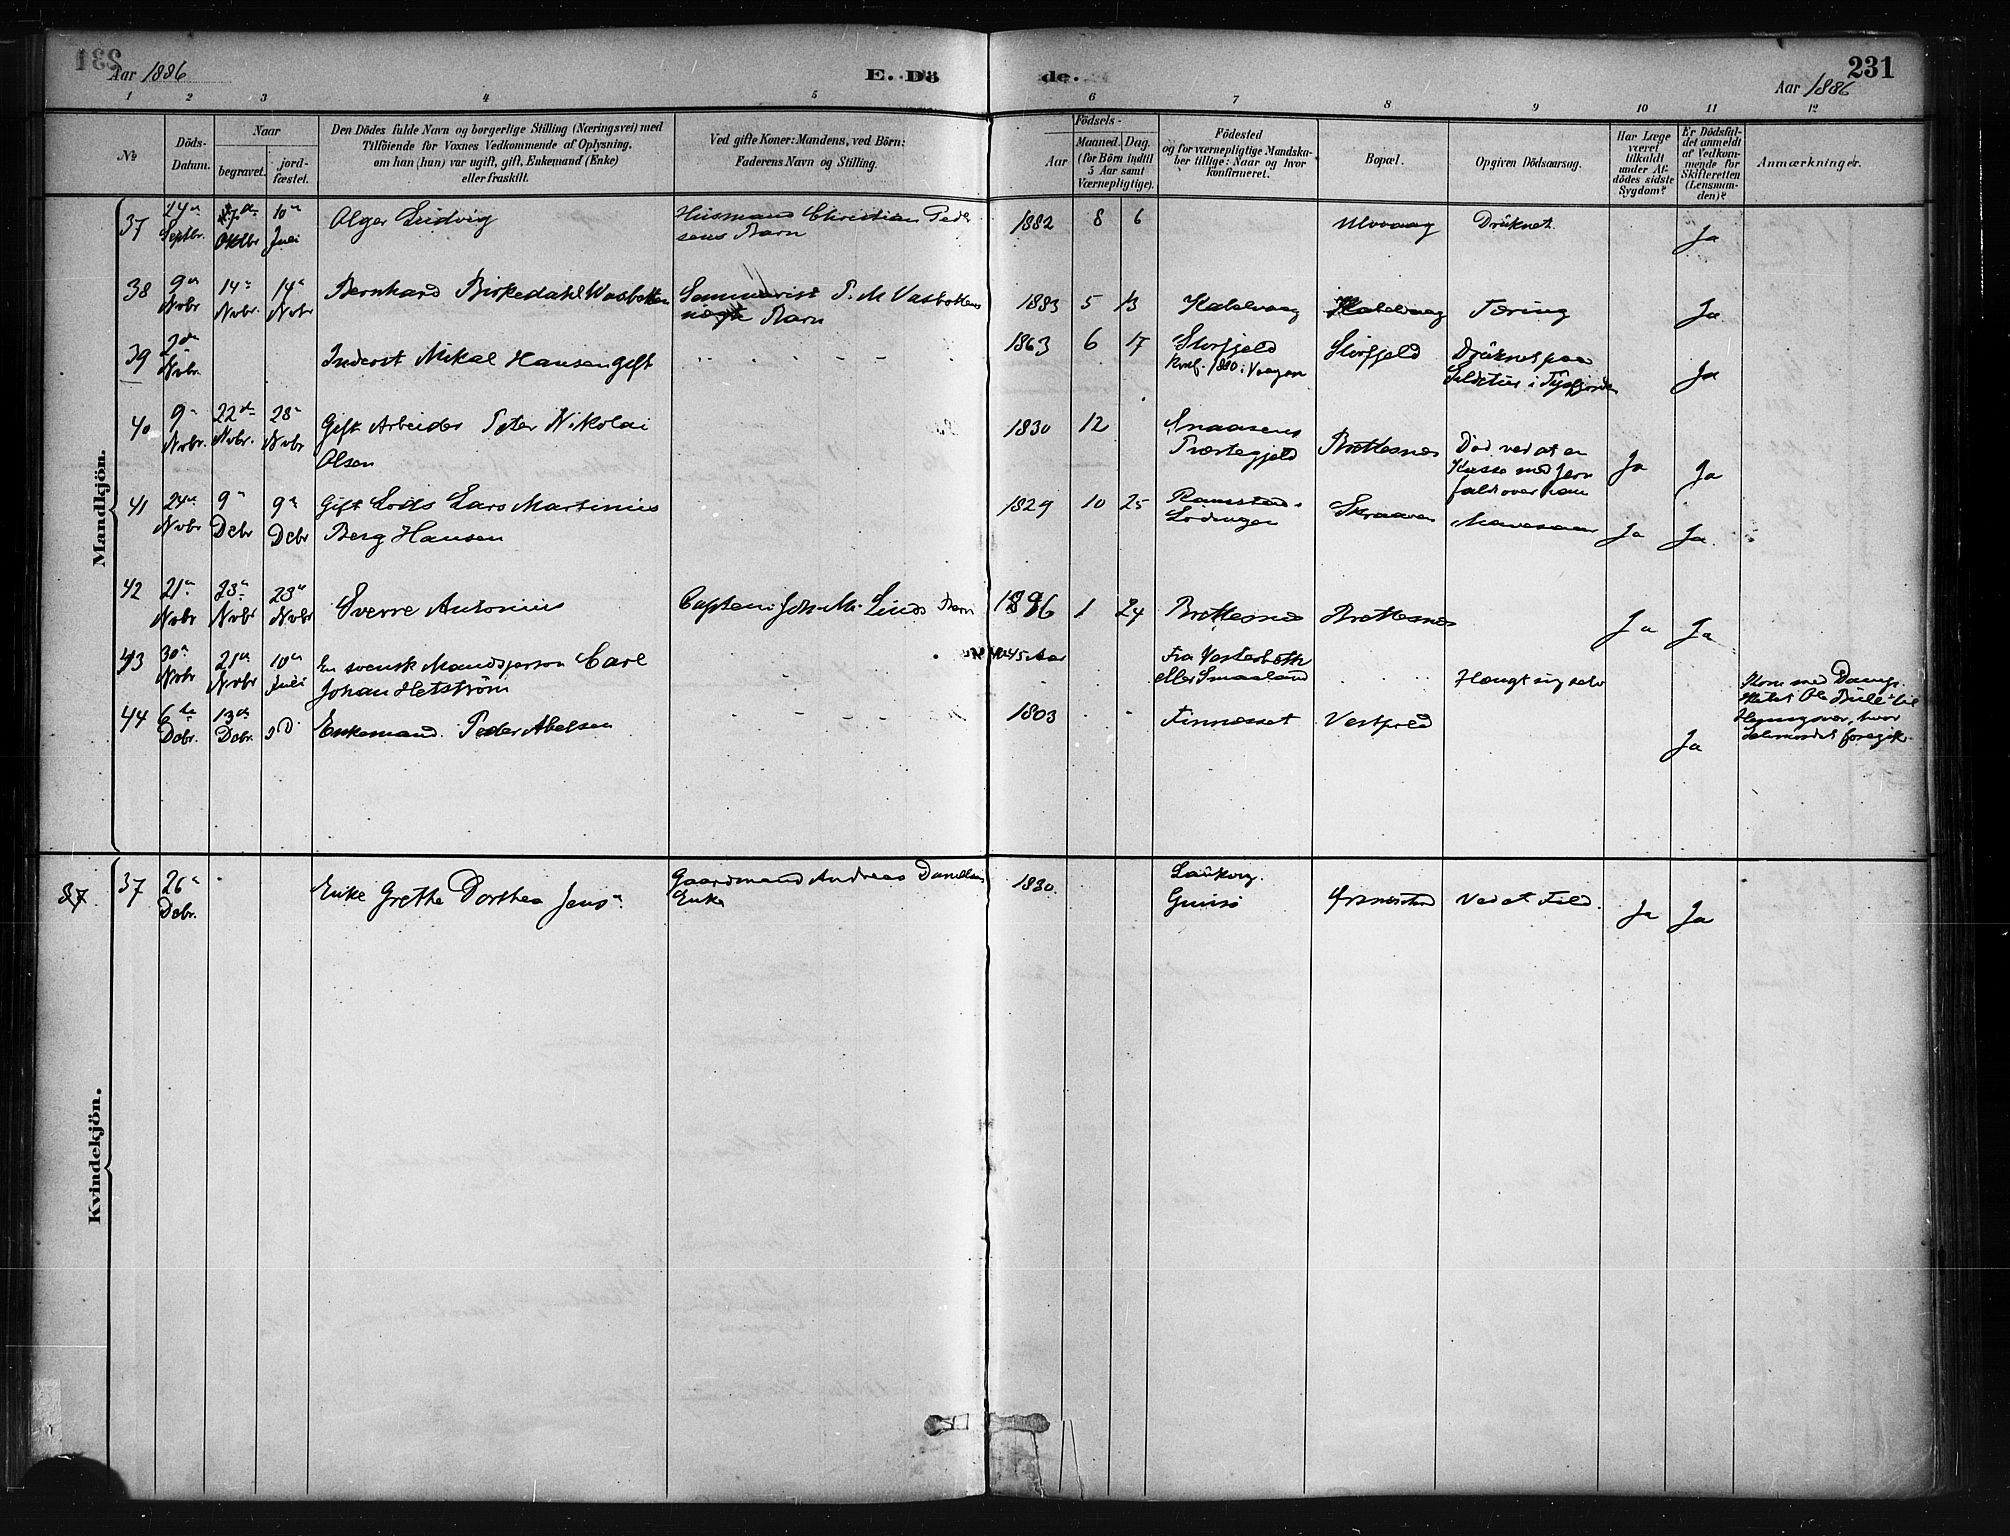 Aar 1886
E. Döde.
231
Aar 1886
1 2 3 4 5 6 7 8 9 10 11 12
No.
Döds-Datum.
Naar
begravet.
jord-fæstet.
Den Dödes fulde Navn og borgerlige Stilling (Næringsvei) med
Tilföiende for Voxnes Vedkommende af Oplysning,
om han (hun) var ugift, gift, Enkemand (Enke)
eller fraskilt.
Ved gifte Koner: Mandens, ved Börn:
Faderens Navn og Stilling.
Födsels-
Aar
Maaned. Dag.
(for Börn indtil
5 Aar samt
Værnepligtige).
Födested
og for værnepligtige Mandska-
ber tillige: Naar og hvor
konfirmeret.
Bopæl.
Opgiven Dödsaarsag.
Har Læge
været
tilkaldt
under Af-
dödes sidste
Sygdom?
Er Dödsfal-
det anmeldt
af Vedkom-
mende for
Skifteretten
(Lensman-
den)?
Anmærkninger.
Mandkjön.
37 24de Septbr. Oktbr 10de Juli Olger Ludvig Husmand Christian Peder
sens Barn 1882 8 6 Ulvaag Drüknet Ja
38 9de Nvbr 14de Nvbr. 14de Nvbr Bernhard Birkedahl Vasbotten P. M. Vasbottens
Barn 1883 5 13 Kabelvaag Kabelvaag Tæring Ja
39 2de Nvbr. Inderst Mikal Hansen gift 1863 6 17 Storfjeld
Konf. 1880 i Vaagen Storfjeld Drüknet paa
i Tysfjorden Ja
40 9de Nvbr. 22de Nvbr. 28de Nvbr Gift Arbeider Peter Nikolai
Olsen 1830 12 Snaasens
Præstegjeld Brettesnes Död ved at en
Kasse med Jern
faldt over ham Ja Ja
41 24de Nvbr 9de Dcbr 9de Dcbr Gift Lods Lars Martinius
Berg Hansen 1829 10 25 Ramstad
Lödingen Skraaven Mavesaar Ja Ja.
42 21de Nvbr 23de Nvbr 23de Nvbr Sverre Antonius Captein Joh. M. Linds Barn 1886 1 24 Brettesnes Brettesnes Ja Ja
43 30de Nvbr 21de Nvbr 10de Juli En svensk Mandsperson Carl
Johan Hetström 45 Aar Fra Vesterboth
eller Smaaland Hængt sig selv Kom med Damp-
skibet Ole Bull til
Henningsvær, hvor
Selvmordet foregik.
44 6te Dcbr. 13de Dcbr. Enkemand Peder Abelsen 1803 Finnesset Vestpold Ja
Kvindekjön.
37 37 26de Dcbr. Enke Grethe Dorthea Jensd. Gaardmand Andreas Danielsens
Enke 1830 Gimsö Ved et Fald. Ja Ja